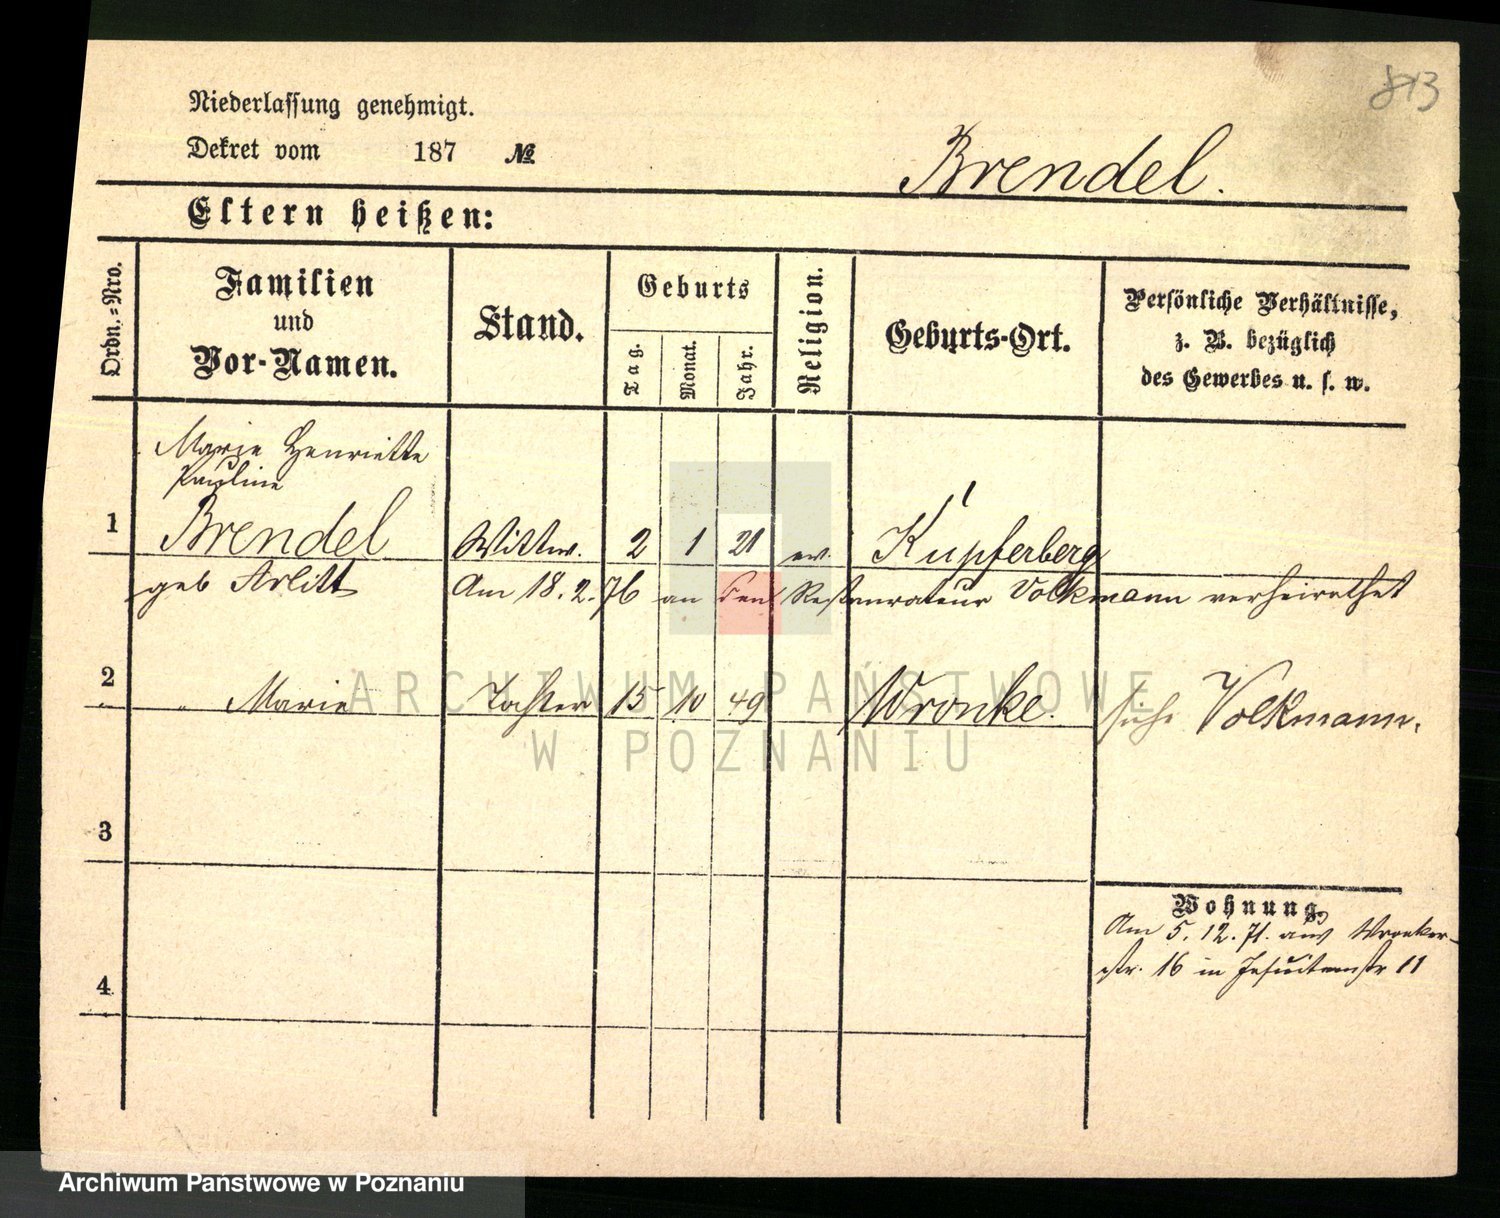 813
Niederlassung genehmigt.
Dekret vom 187 №
Brendel.
Eltern heißen:
Ordn.-Nro.
Familien
und
Vor-Namen.
Stand.
Geburts
Tag.
Monat.
Jahr.
Religion.
Geburts-Ort.
Persönliche Verhältnisse,
z. B. bezüglich
des Gewerbes u. s. w.
Marie Henriette
Pauline
1 Brendel Wittw. 2 1 21 ev. Kupferberg
geb Arlitt Am 18.2.76 an den Restaurateur Volkmann verheirathet
2 " Marie Tochter 15 10 49 Wronke. siehe Volkmann.
3
Wohnung.
Am 5.12.71. aus Wronker-
str. 16 in Jesuitenstr 11
4
ARCHIWUM PAŃSTWOWE
W POZNANIU
Archiwum Państwowe w Poznaniu